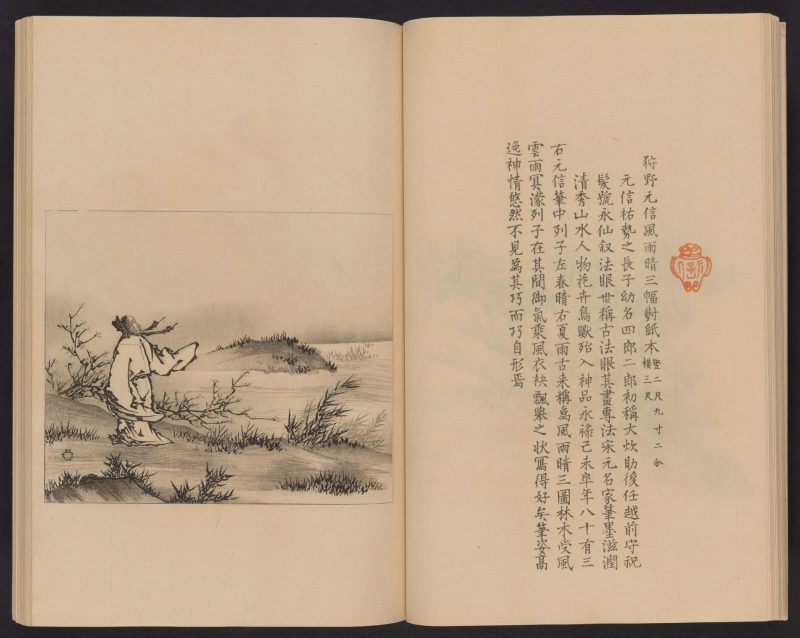 狩野元信風雨晴三幅對紙本竪二尺九寸二分橫三尺
元信祐勢之長子幼名四郎二郎初稱大炊助後任越前守祝
髮號永仙叙法眼世稱古法眼其畫專法宋元名家筆墨滋潤
清秀山水人物花卉鳥獸殆入神品永祿己未卒年八十有三
右元信筆中列子左春晴右夏雨古来稱爲風雨晴三圖林木受風
雲雨冥濛列子在其間御氣乘風衣袂飄擧之狀寫得好矣筆姿高
逸神情悠然不見爲其巧而巧自形焉